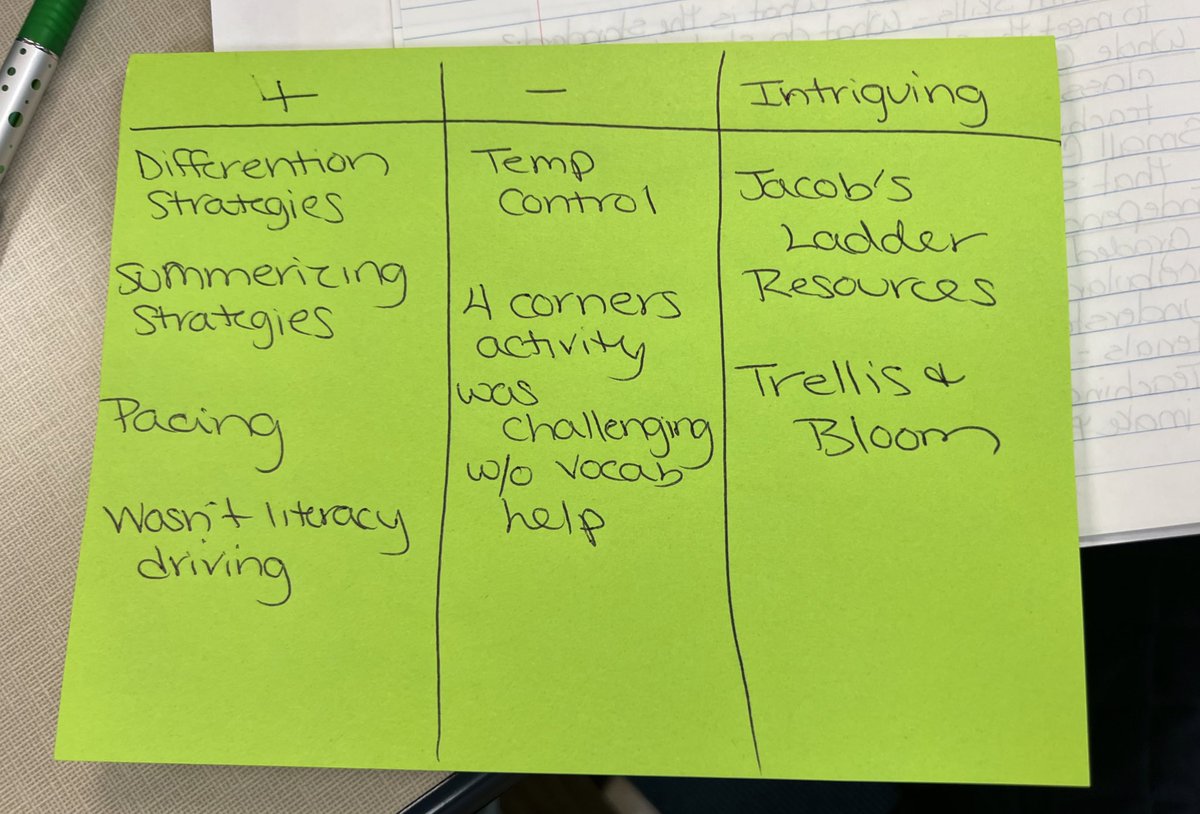 +
Differention
Strategies
Summerizing
Strategies
Pacing
Wasn't literacy
driving
-
Temp
Control
4 corners
activity
was
challenging
w/o vocab
help
Intriguing
Jacob's
Ladder
Resources
Trellis &
Bloom